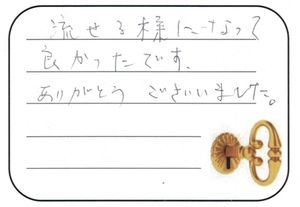 流せる様になって
良かったです。
ありがとうございいました。